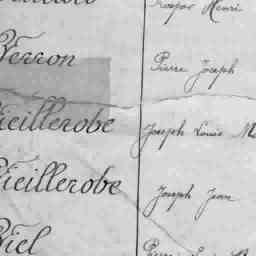 Gaspar Henri
Verron Pierre Joseph
Vieillerobe Joseph Louis M
Vieillerobe Joseph Jean
Viel Pierre